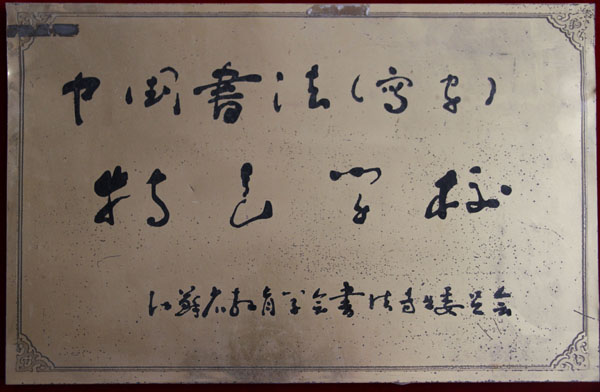 中国書法(寫字)
特色学校
江蘇省教育学会書法专业委员会